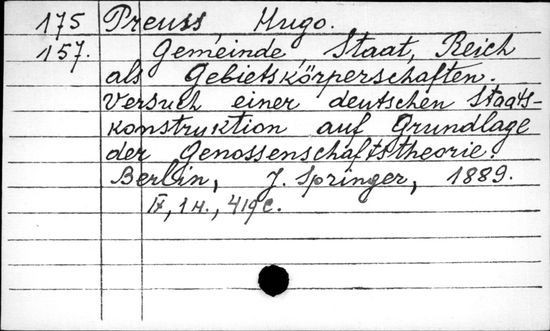 175 Preuss, Hugo.
157. Gemeinde, Staat, Reich
als Gebietskörperschaften.
Versuch einer deutschen Staats-
konstruktion auf Grundlage
der Genossenschaftstheorie.
Berlin, J. Springer, 1889.
IV, 1 н., 419 с.